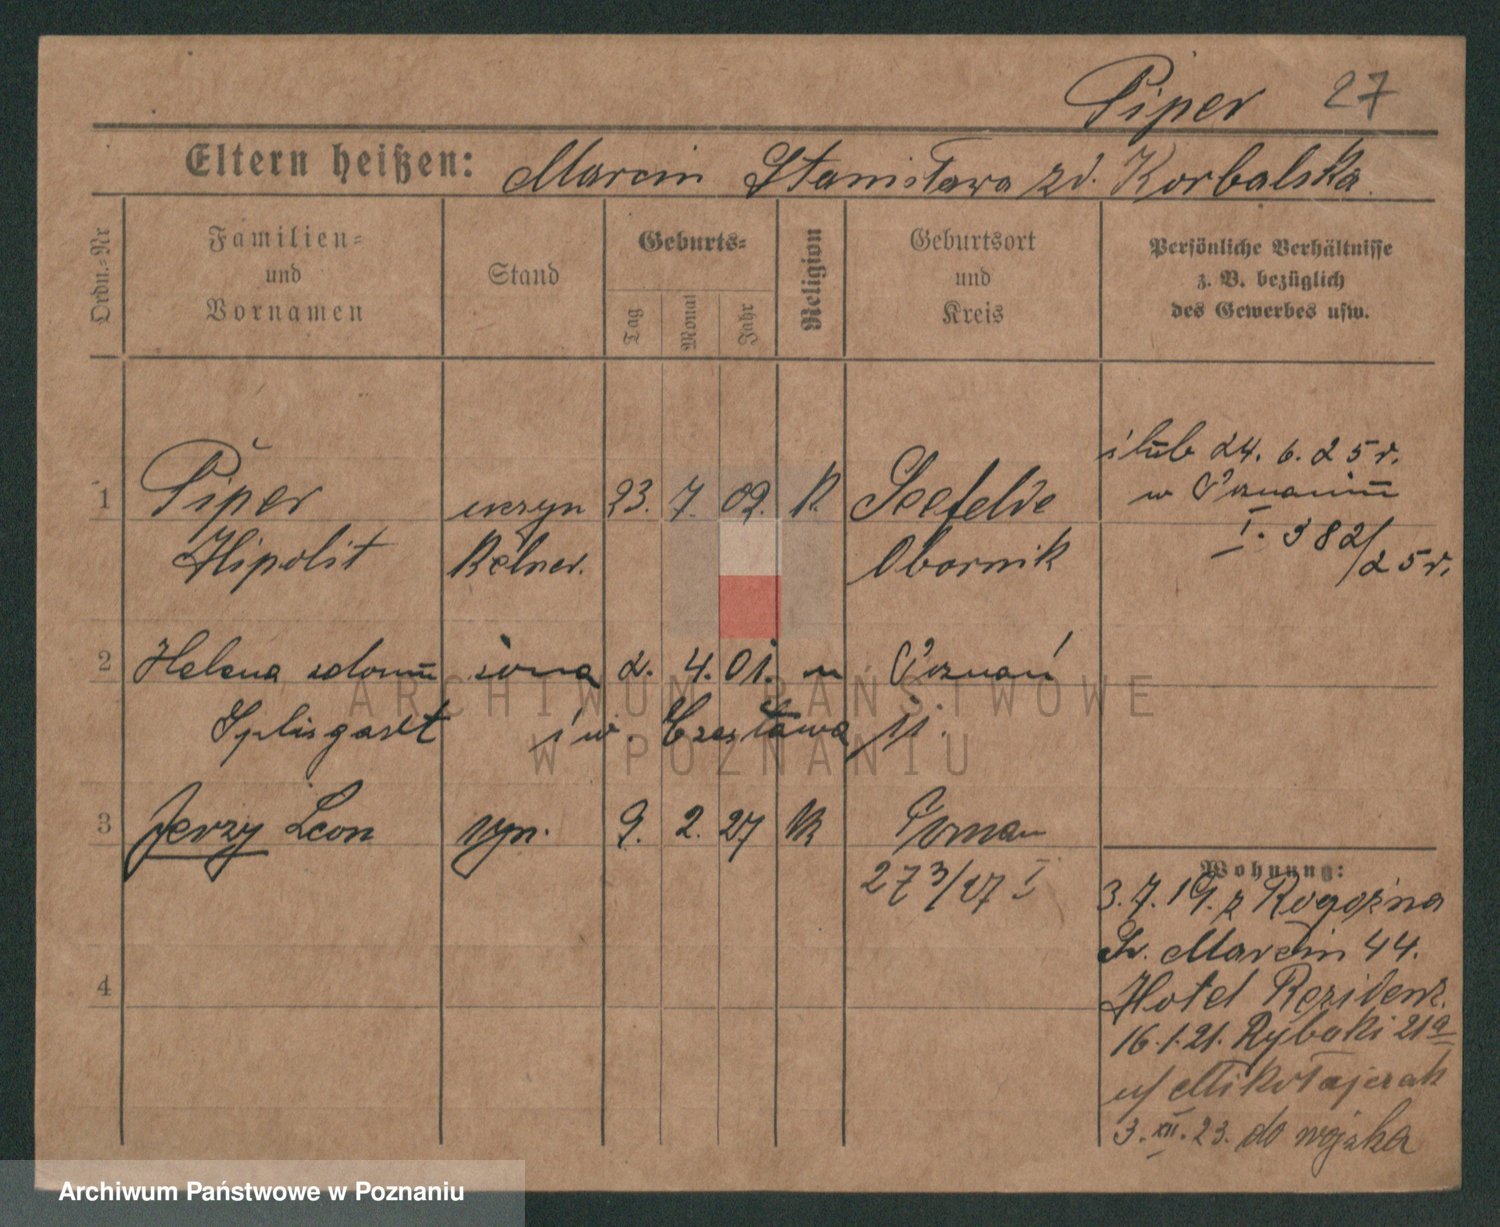 Piper 27
Eltern heißen: Marcin Stanisława zd. Korbalska
Ordn.=Nr
Familien= und Vornamen
Stand
Geburts=
Tag
Monat
Jahr
Religion
Geburtsort und Kreis
Persönliche Verhältnisse
z. B. bezüglich
des Gewerbes usw.
ślub 24. 6. 25 r.
1 Piper uczyn 23. 7. 02. k. Seefelde
w Poznaniu
I. 382/25 r.
Hipolit Kelner. Obornik
2 Helena żona 2. 4. 01. Poznań
Splisgardt św. Czesława 11.
3 Jerzy Leon syn. 9. 2. 27 k Poznan
273/27 I
4
Wohnung:
3. 7. 19. z Rogoźna
Św. Marcin 44.
Hotel Rezidenz.
16.1.21. Rybaki 21a
u/ Mikołajczak
3. XII. 23. do wojska
ARCHIWUM PAŃSTWOWE
W POZNANIU
Archiwum Państwowe w Poznaniu